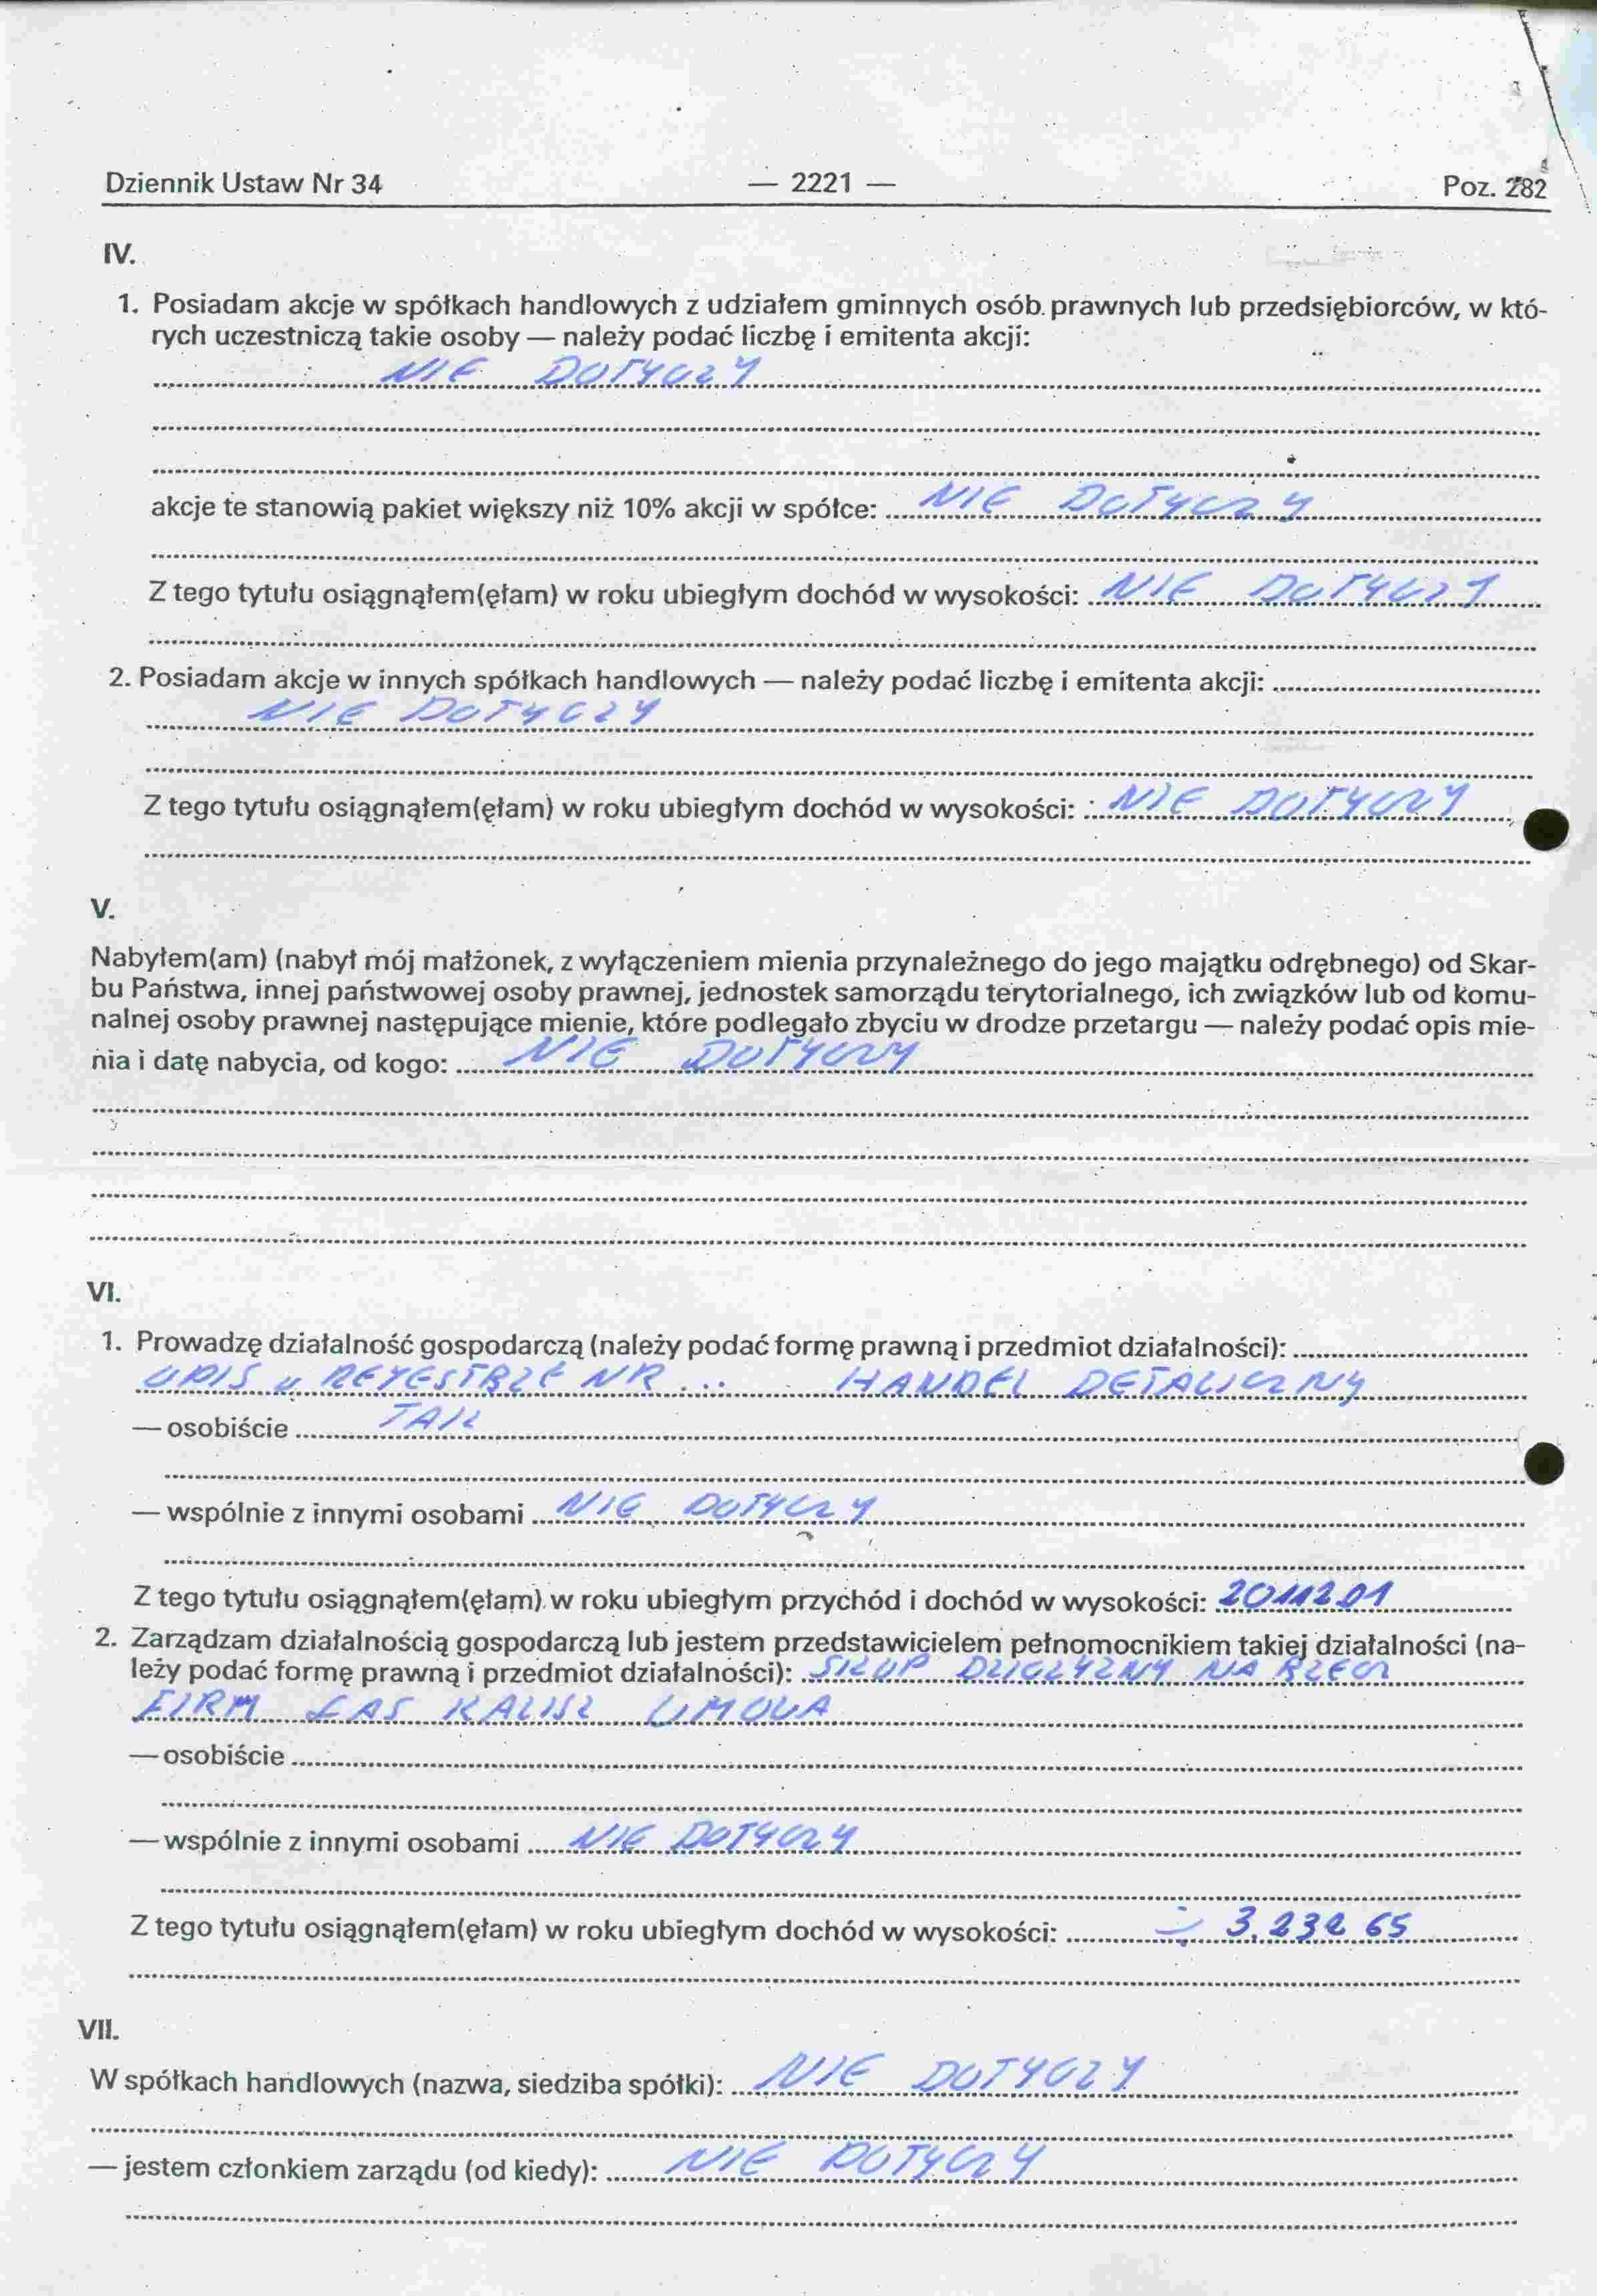 Dziennik Ustaw Nr 34 — 2221 — Poz. 282
IV.
1. Posiadam akcje w spółkach handlowych z udziałem gminnych osób prawnych lub przedsiębiorców, w któ-
rych uczestniczą takie osoby — należy podać liczbę i emitenta akcji:
NIE DOTYCZY
akcje te stanowią pakiet większy niż 10% akcji w spółce: NIE DOTYCZY
Z tego tytułu osiągnąłem(ęłam) w roku ubiegłym dochód w wysokości: NIE DOTYCZY
2. Posiadam akcje w innych spółkach handlowych — należy podać liczbę i emitenta akcji:
NIE DOTYCZY
Z tego tytułu osiągnąłem(ęłam) w roku ubiegłym dochód w wysokości: NIE DOTYCZY
V.
Nabyłem(am) (nabył mój małżonek, z wyłączeniem mienia przynależnego do jego majątku odrębnego) od Skar-
bu Państwa, innej państwowej osoby prawnej, jednostek samorządu terytorialnego, ich związków lub od komu-
nalnej osoby prawnej następujące mienie, które podlegało zbyciu w drodze przetargu — należy podać opis mie-
nia i datę nabycia, od kogo: NIE DOTYCZY
VI.
1. Prowadzę działalność gospodarczą (należy podać formę prawną i przedmiot działalności):
WPIS w REYESTRZE NR ... HANDEL DETALICZNY
— osobiście TAK
— wspólnie z innymi osobami NIE DOTYCZY
Z tego tytułu osiągnąłem(ęłam) w roku ubiegłym przychód i dochód w wysokości: 20112.01
2. Zarządzam działalnością gospodarczą lub jestem przedstawicielem pełnomocnikiem takiej działalności (na-
leży podać formę prawną i przedmiot działalności): SKUP DZICZYZNY NA RZECZ
FIRM LAS KALISZ UMOWA
— osobiście
— wspólnie z innymi osobami NIE DOTYCZY
Z tego tytułu osiągnąłem(ęłam) w roku ubiegłym dochód w wysokości: 3.232 65
VII.
W spółkach handlowych (nazwa, siedziba spółki): NIE DOTYCZY
— jestem członkiem zarządu (od kiedy): NIE DOTYCZY